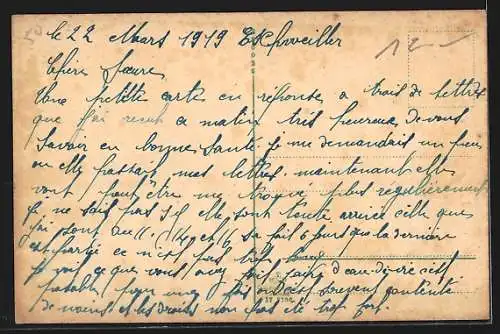 le 22 Mars 1919 Eschweiler
Chère Soeur
Une petite carte en réponse a trois de lettres
que j'ai recut ce matin très heureux de vous
savoir en bonne santé je me demandais un peu
ou elle passait mes lettres maintenant elle
vont peut être me plus régulièrement
je ne sais pas si elle sont toute arrivé celle que
j'ai du 11. 14 et 16 sa fait 6 jours que la dernière
est partie ce n'est pas très long
je vois ce que vous avez fait faire d'eau-de-vie c'est
passable pour vous
de moins et les droits non pas été trop fort
12